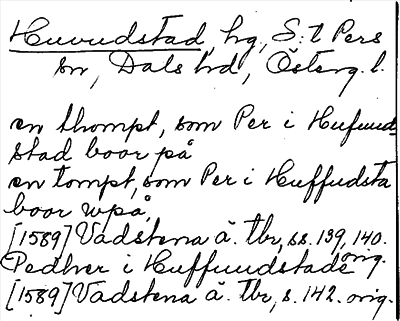 Huvudstad, hg, S:t Pers
sn, Dals hd, Österg. l.
en thompt, som Per i Hufuud
stad boor på
en tompt, som Per i Huffudsta
boor upå,
[1589] Vadstena ä. tbr, ss. 139, 140.
orig.
Pedher i Huffuudstade
[1589] Vadstena ä. tbr, s. 142. orig.